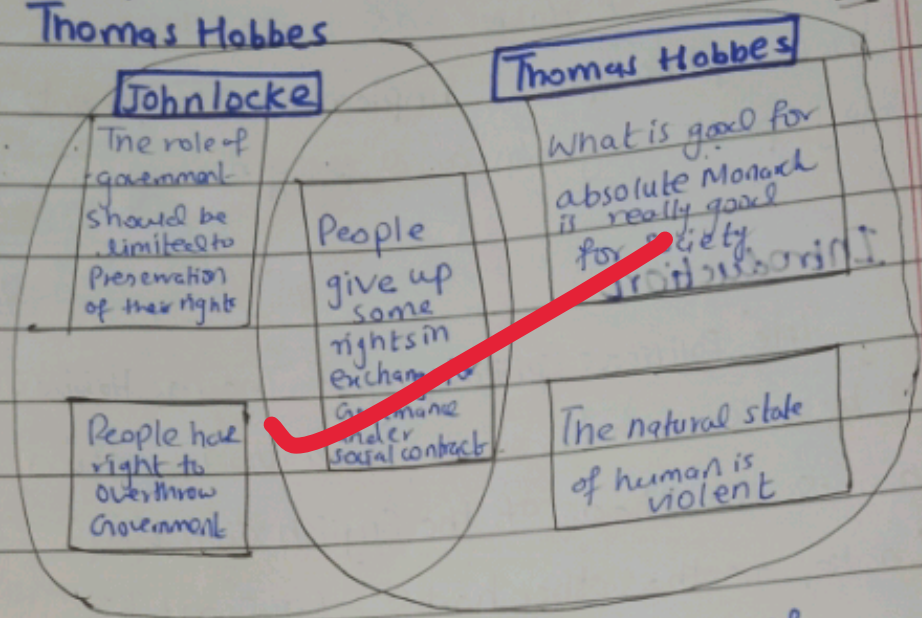 Thomas Hobbes
John locke
The role of
government
should be
limited to
Preservation
of their rights
People have
right to
overthrow
Government
People
give up
some
rights in
exchange
under
social contract
Thomas Hobbes
What is good for
absolute Monarch
is really good
for society
The natural state
of human is
violent